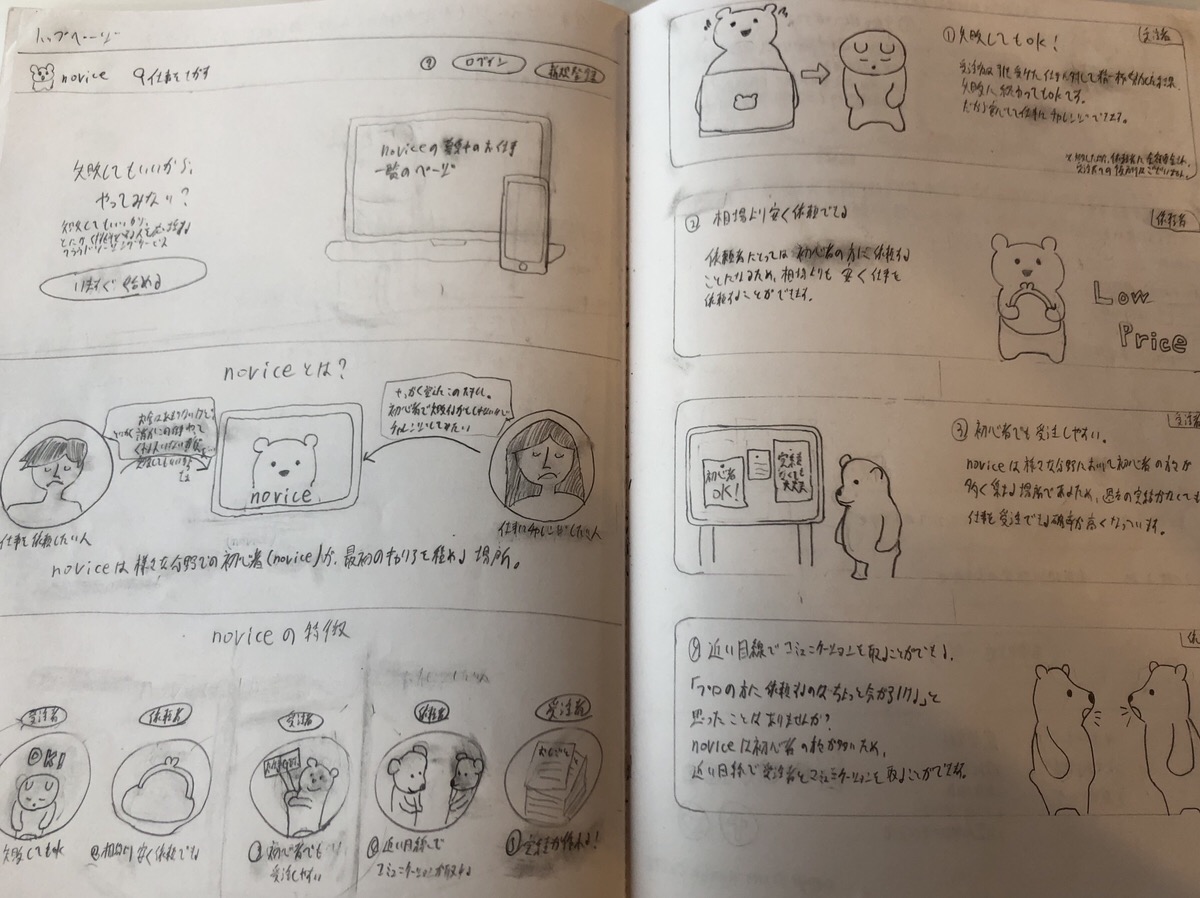 トップページ
novice 仕事をさがす
ログイン
新規登録
失敗してもいいから、
やってみない?
失敗してもいいから、
クラウドソーシングサービス
今すぐ始める
noviceの のお仕事
一覧のページ
noviceとは?
初心者で失敗するかもしれないけど
チャレンジしてみたい
novice
仕事を依頼したい人
仕事にチャレンジしたい人
noviceは様々な分野での初心者(novice)が、最初のキャリアを積める場所。
noviceの特徴
受注者
依頼者
受注者
依頼者
受注者
OK!
失敗してもok
②相場より安く依頼できる
③初心者でも
受注しやすい
④近い目線で
コミュニケーションが取れる
⑤実績が作れる!
①失敗してもok!
受注者
失敗に終わってもokです。
だから安心して仕事にチャレンジできます。
②相場より安く依頼できる
依頼者
依頼者にとっては初心者の方に依頼する
ことになるため、相場よりも安く仕事を
依頼することができます。
Low
Price
③初心者でも受注しやすい。
受注者
noviceは様々な分野において初心者の方が
多く集まる場所であるため、過去の実績がなくても
仕事を受注できる確率が高くなっています。
初心者
OK!
実績
なくても
大丈夫
④近い目線でコミュニケーションを取ることができる。
依
「プロの方に依頼するのはちょっと気が引ける」と
思ったことはありませんか?
noviceは初心者の方が多いため、
近い目線で受注者とコミュニケーションを取ることができます。